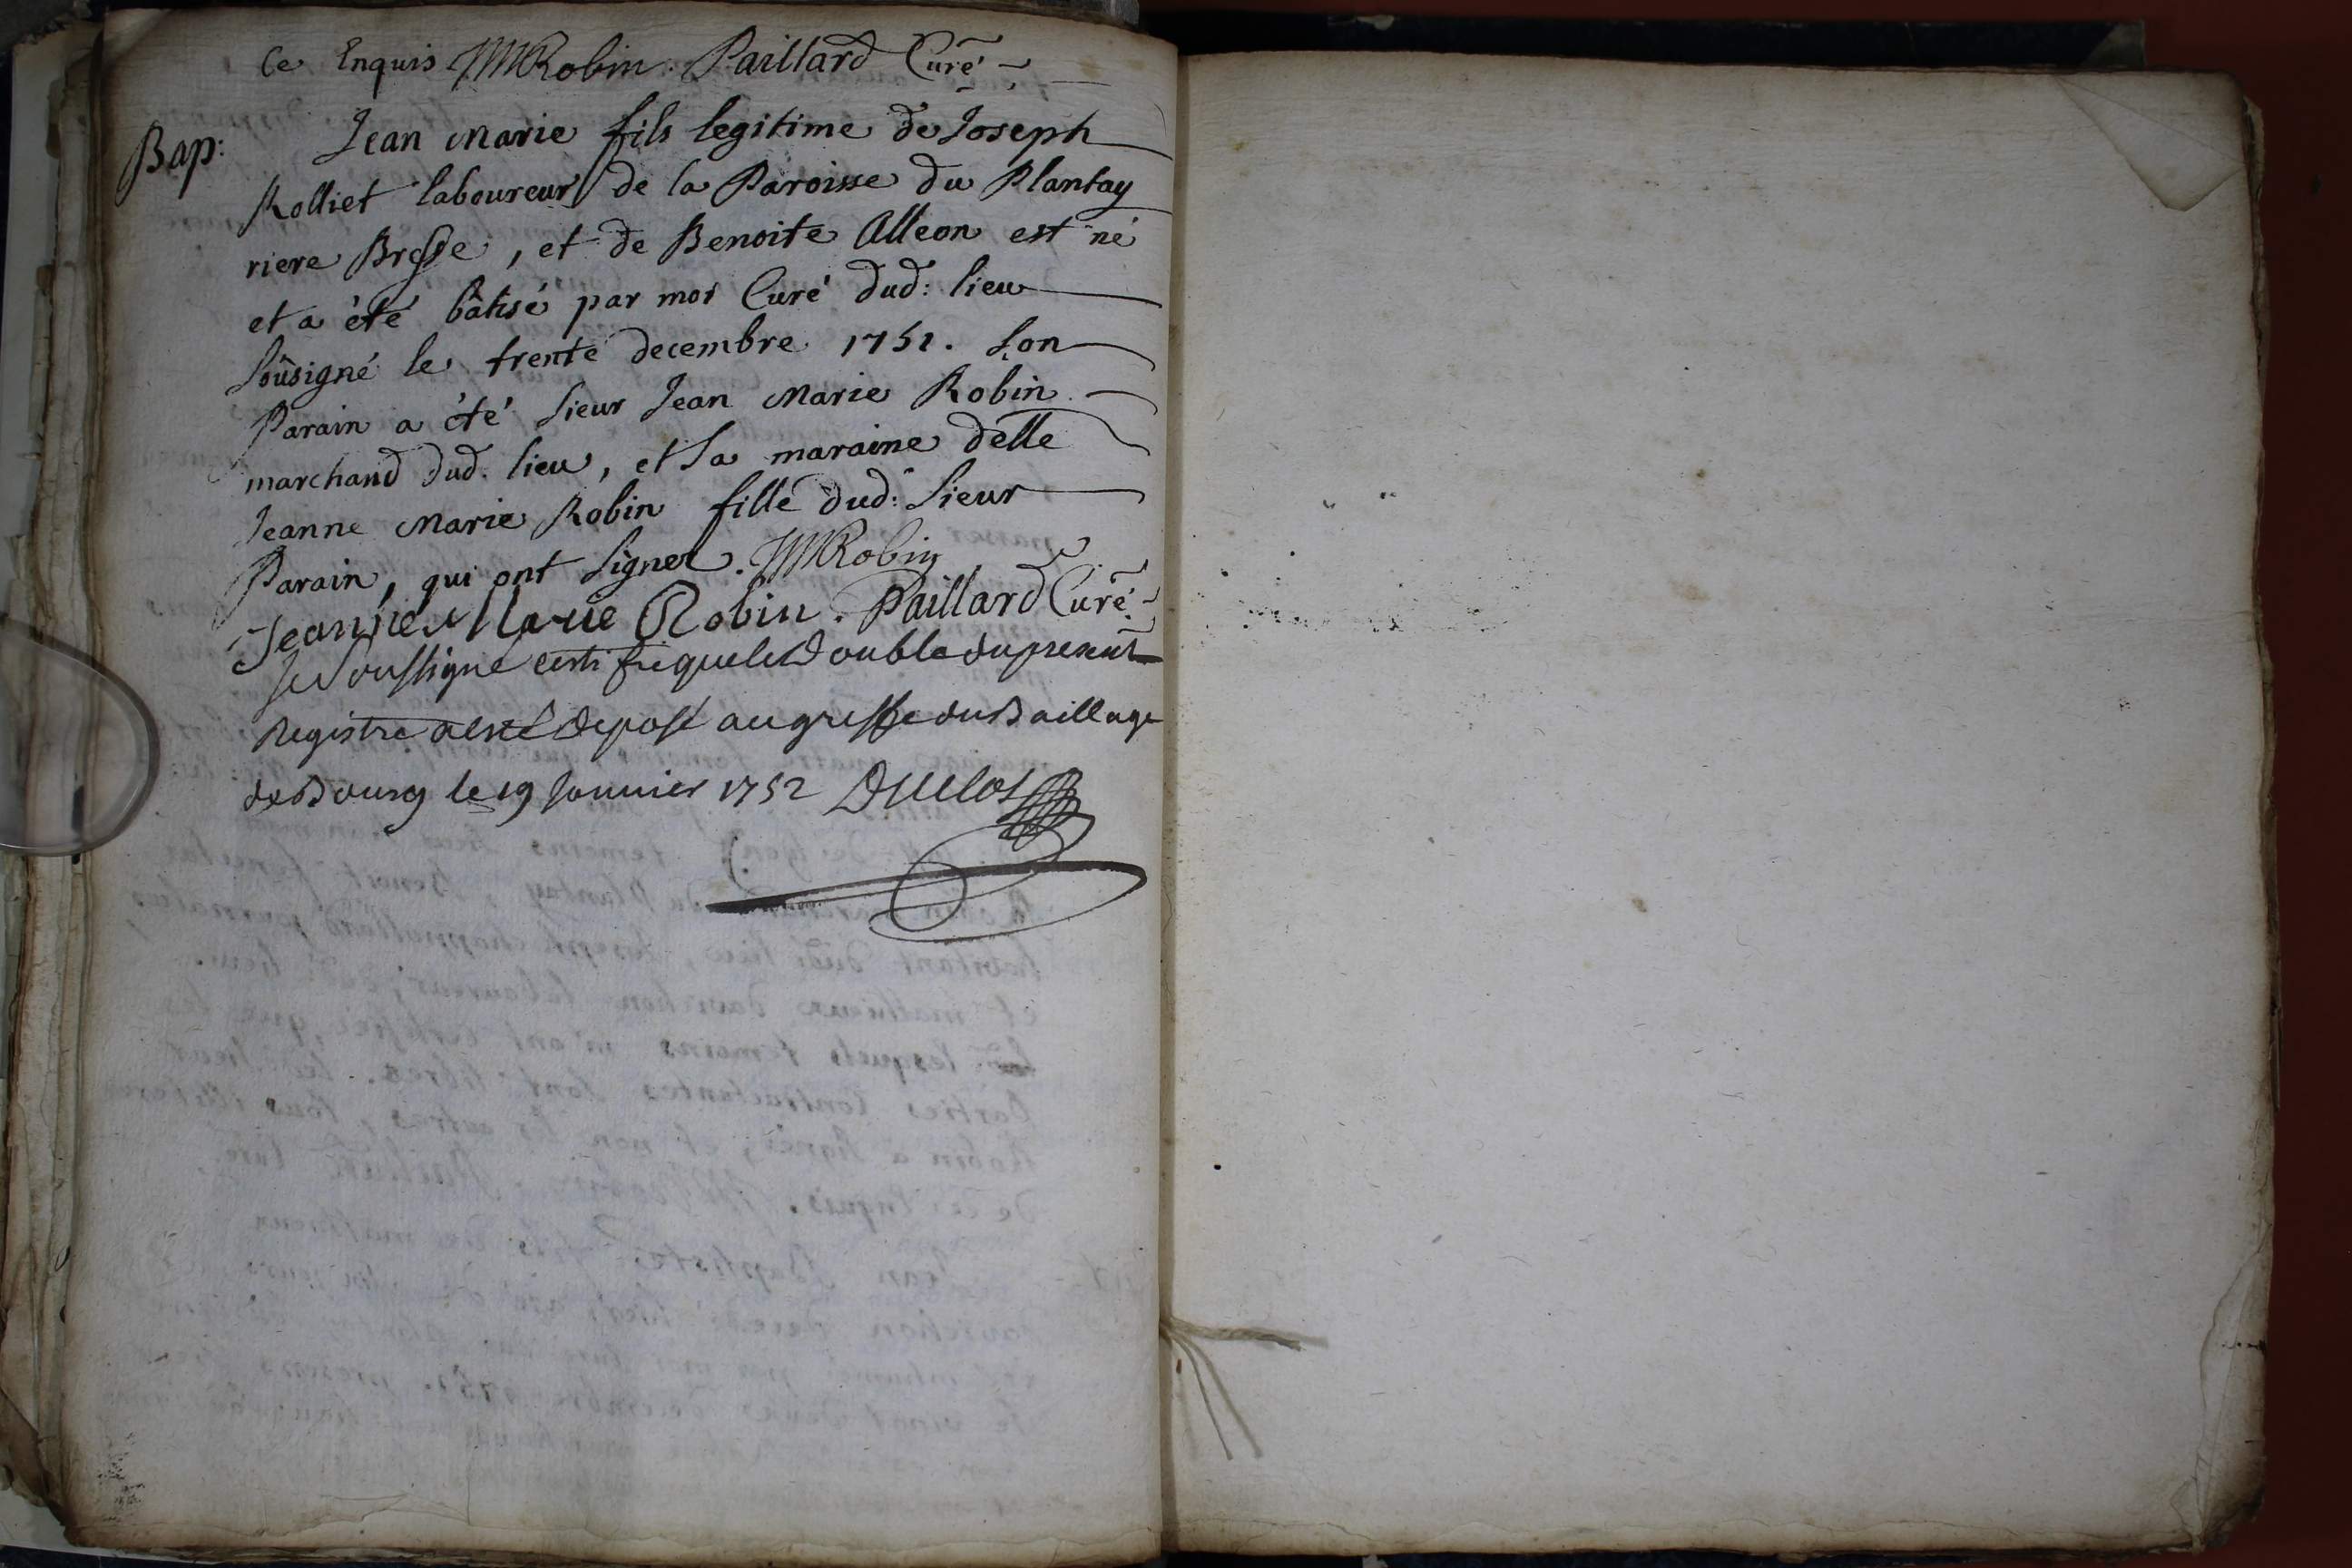 Ce Enquis JMRobin. Paillard Curé
Bap: Jean Marie fils legitime de Joseph
Rolliet laboureur de la Paroisse du Plantay
riere Bresse, et de Benoite Alleon est né
et a été bâtisé par moi Curé dud: lieu
Soûsigné le trente decembre 1751. Son
Parain a été Sieur Jean Marie Robin
marchand dud. lieu, et Sa maraine delle
Jeanne Marie Robin fille dud: Sieur
Parain, qui ont Signer. JMRobin
Jeanne Marie Robin. Paillard Curé
Je Soussigné certifie que le Double du present
Registre a esté deposé au greffe du Baillage
de Bourg le 19 Janvier 1752 Duclos